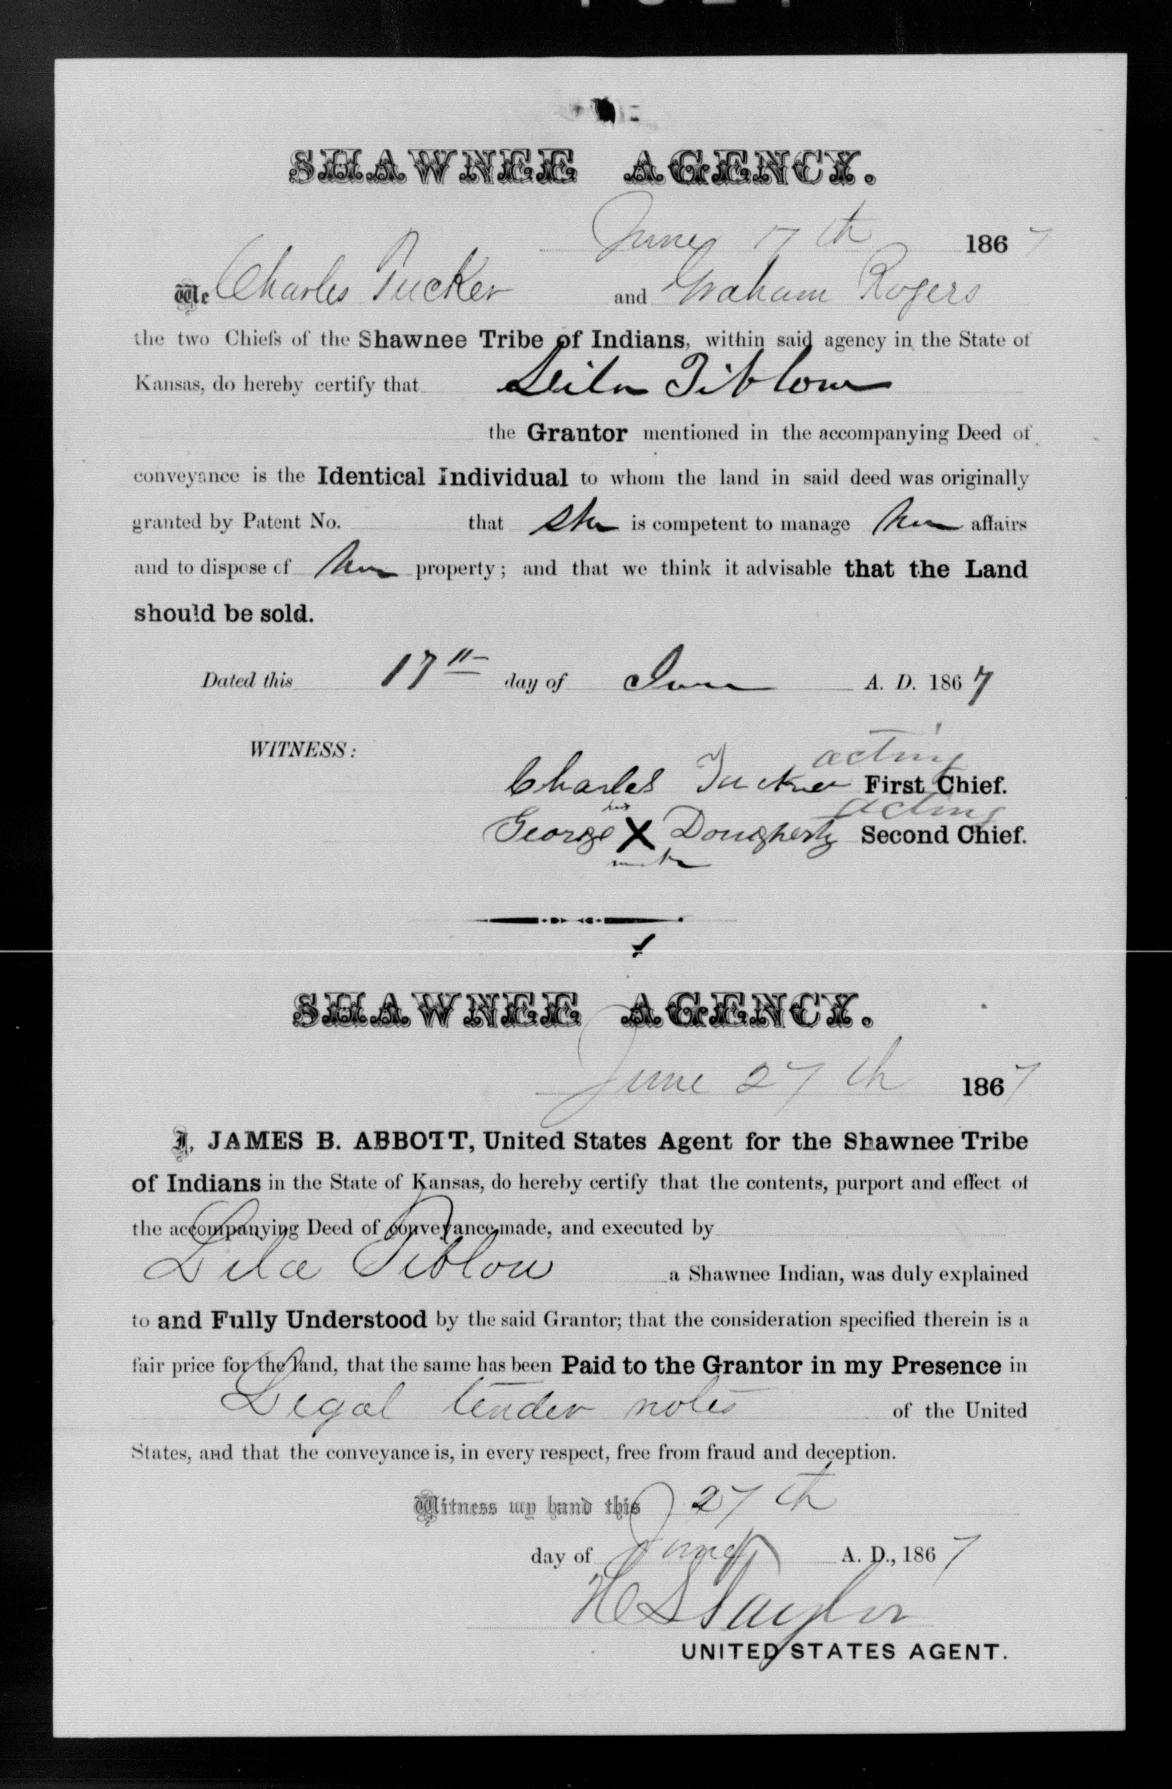 SHAWNEE AGENCY.
June 17th 1867
We Charles Tucker and Graham Rogers
the two Chiefs of the Shawnee Tribe of Indians, within said agency in the State of
Kansas, do hereby certify that Leila Tiblow
the Grantor mentioned in the accompanying Deed of
conveyance is the Identical Individual to whom the land in said deed was originally
granted by Patent No. that She is competent to manage her affairs
and to dispose of her property; and that we think it advisable that the Land
should be sold.
Dated this 17th day of June A. D. 1867
WITNESS:
acting
Charles Tucker First Chief.
his acting
George X Dougherty Second Chief.
mark
SHAWNEE AGENCY.
June 27th 1867
I, JAMES B. ABBOTT, United States Agent for the Shawnee Tribe
of Indians in the State of Kansas, do hereby certify that the contents, purport and effect of
the accompanying Deed of conveyance made, and executed by
Lila Tiblow a Shawnee Indian, was duly explained
to and Fully Understood by the said Grantor; that the consideration specified therein is a
fair price for the land, that the same has been Paid to the Grantor in my Presence in
Legal tender notes of the United
States, and that the conveyance is, in every respect, free from fraud and deception.
Witness my hand this 27th
day of June A. D., 1867
H S Taylor
UNITED STATES AGENT.